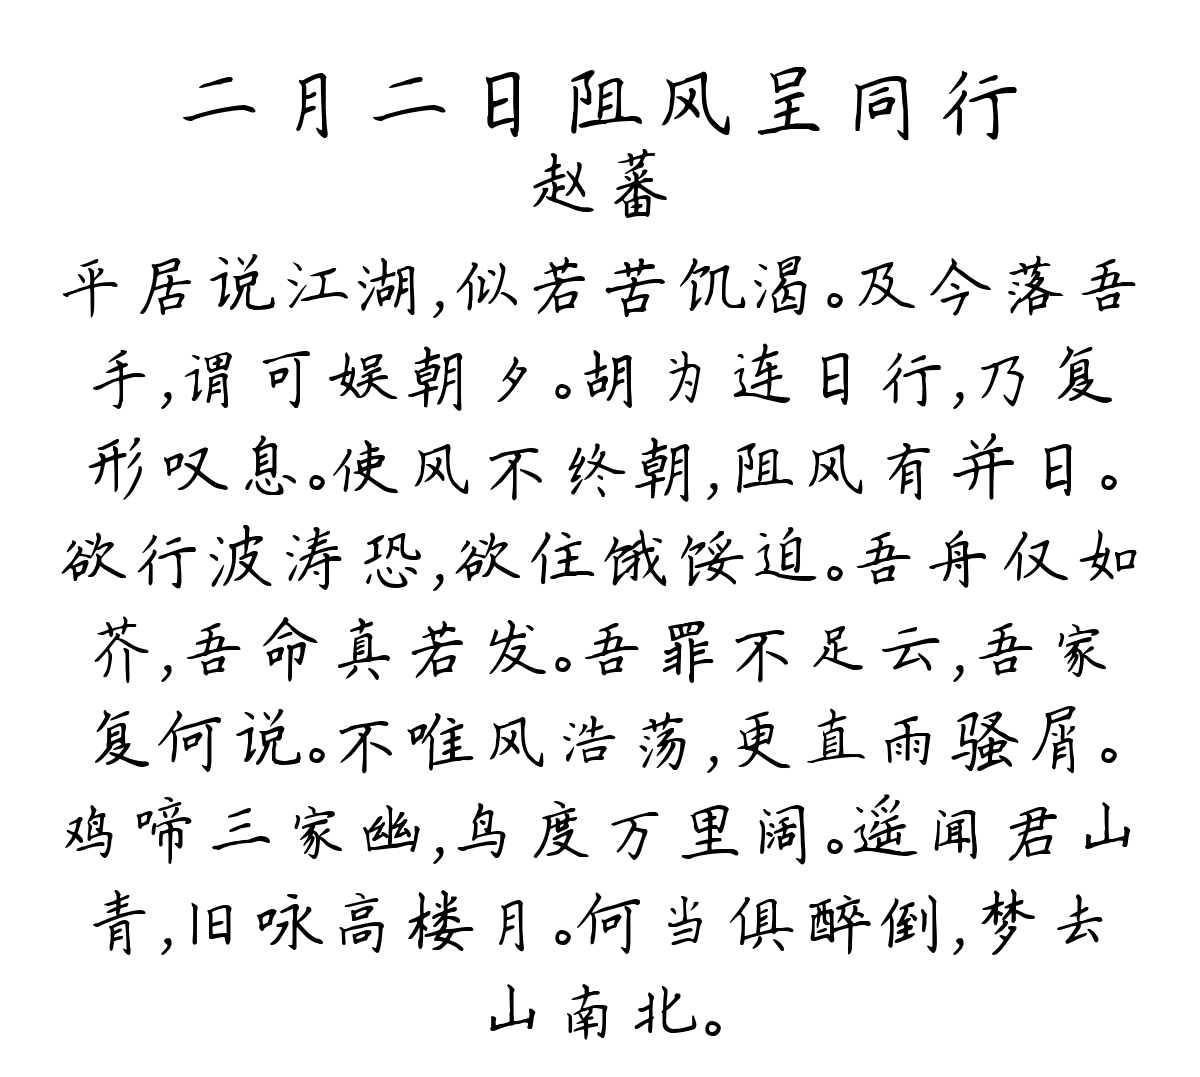 二月二日阻风呈同行
赵蕃
平居说江湖,似若苦饥渴。及今落吾
手,谓可娱朝夕。胡为连日行,乃复
形叹息。使风不终朝,阻风有并日。
欲行波涛恐,欲住饿馁迫。吾舟仅如
芥,吾命真若发。吾罪不足云,吾家
复何说。不唯风浩荡,更直雨骚屑。
鸡啼三家幽,鸟度万里阔。遥闻君山
青,旧咏高楼月。何当俱醉倒,梦去
山南北。